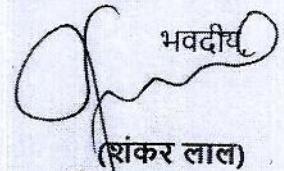 भवदीय,
(शंकर लाल)